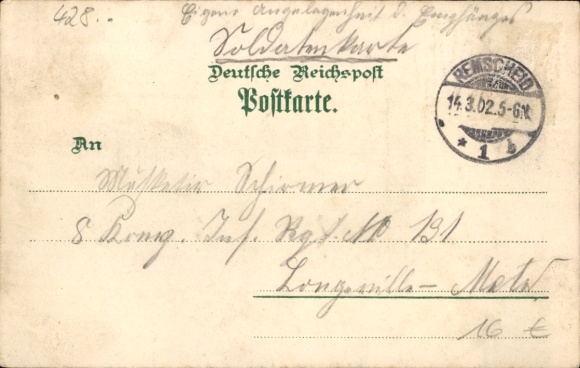 428.
Eigene Angelegenheit d. Empfängers
Soldatenkarte
Deutsche Reichspost
Postkarte.
REMSCHEID
14.3.02.5-6N.
* 1 b
An
Musketir Schirmer
8 Komp. Inf. Rgt. No 131
Longeville - Metz
16 €